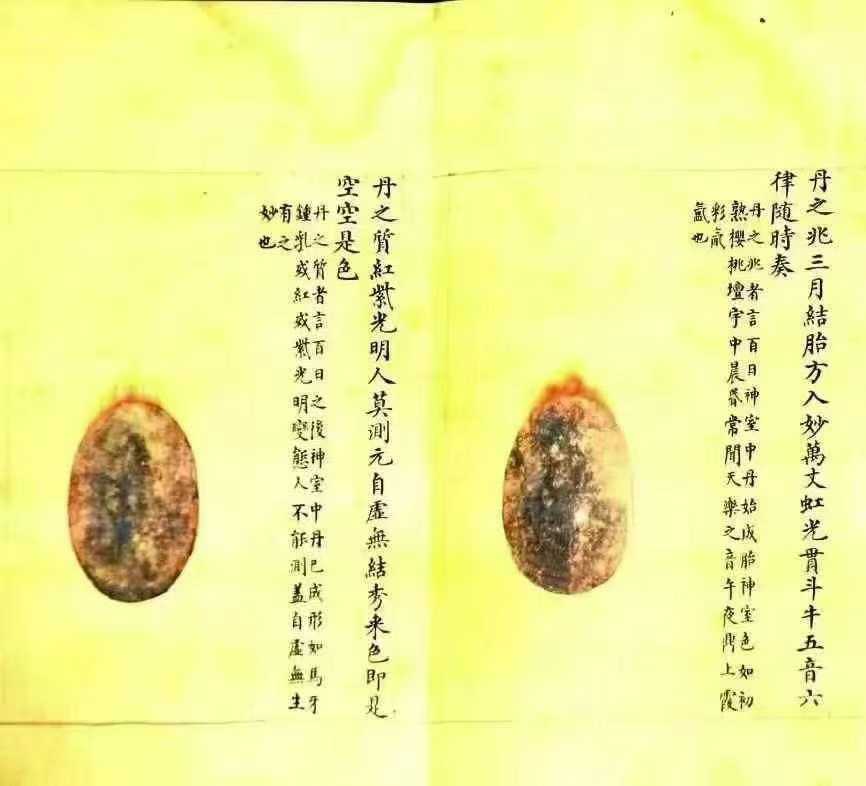 丹之兆三月結胎方入妙萬丈虹光貫斗牛五音六
律随時奏
丹之兆者言百日神室中丹始成胎神室色如初
熟櫻桃壇宇中晨昬常聞天樂之音午夜鼎上霞
彩氤
氳也
丹之質紅紫光明人莫測元自虛無結秀来色即是
空空是色
丹之質者言百日之後神室中丹已成形如馬牙
鍾乳或紅或紫光明變態人不能測蓋自虛無生
有之
妙也